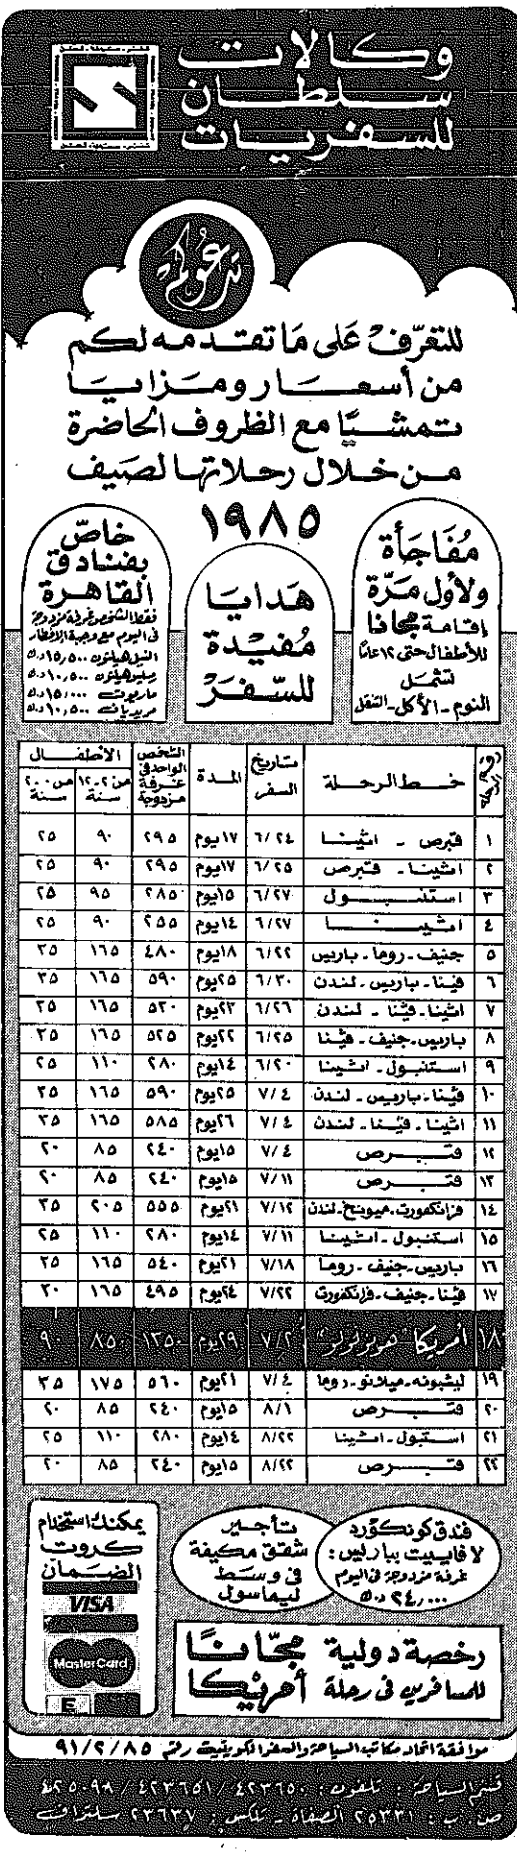 وكالات
سلطان
للسفريات
تدعوكم
للتعرّف على ما تقدمه لكم
من أسعار ومزايا
تمشيًا مع الظروف الحاضرة
من خلال رحلاتها لصيف
١٩٨٥
مفاجأة
ولأول مرّة
إقامة مجانا
للأطفال حتى ١٢ عامًا
تشمل
النوم - الأكل - التنقل
هدايا
مفيدة
للسفر
خاصّ
بفنادق
القاهرة
فقط الشخص غرفة مزدوجة
في اليوم مع وجبة الإفطار
النيل هيلتون ١٥,٥٠٠ د.ك
رمسيس هيلتون ١٠,٥٠٠ د.ك
ماريوت ١٥,٠٠٠ د.ك
مريديان ١٠,٥٠٠ د.ك
رقم الرحلة | خط الرحلة | تاريخ السفر | المدة | الشخص الواحد في غرفة مزدوجة | الأطفال من ٢-١٢ سنة | من ٠-٢ سنة
١ | قبرص - اثينا | ٦/٢٤ | ١٧ يوم | ٢٩٥ | ٩٠ | ٢٥
٢ | اثينا - قبرص | ٦/٢٥ | ١٧ يوم | ٢٩٥ | ٩٠ | ٢٥
٣ | استنبول | ٦/٢٧ | ١٥ يوم | ٢٨٥ | ٩٥ | ٢٥
٤ | اثينا | ٦/٢٧ | ١٤ يوم | ٢٥٥ | ٩٠ | ٢٥
٥ | جنيف - روما - باريس | ٦/٢٢ | ١٨ يوم | ٤٨٠ | ١٦٥ | ٣٥
٦ | فينا - باريس - لندن | ٦/٣٠ | ٢٥ يوم | ٥٩٠ | ١٦٥ | ٣٥
٧ | اثينا - فينا - لندن | ٦/٢٦ | ٢٣ يوم | ٥٣٠ | ١٦٥ | ٣٥
٨ | باريس - جنيف - فينا | ٦/٢٥ | ٢٢ يوم | ٥٢٥ | ١٦٥ | ٣٥
٩ | استنبول - اثينا | ٦/٢٠ | ١٤ يوم | ٢٨٠ | ١١٠ | ٢٥
١٠ | فينا - باريس - لندن | ٧/٤ | ٢٥ يوم | ٥٩٠ | ١٦٥ | ٣٥
١١ | اثينا - فينا - لندن | ٧/٤ | ٢٦ يوم | ٥٨٥ | ١٦٥ | ٣٥
١٢ | قبرص | ٧/٤ | ١٥ يوم | ٢٤٠ | ٨٥ | ٢٠
١٣ | قبرص | ٧/١١ | ١٥ يوم | ٢٤٠ | ٨٥ | ٢٠
١٤ | فرانكفورت - ميونخ - لندن | ٧/١٢ | ٢١ يوم | ٥٥٥ | ٢٠٥ | ٣٥
١٥ | استنبول - اثينا | ٧/١١ | ١٤ يوم | ٢٨٠ | ١١٠ | ٢٥
١٦ | باريس - جنيف - روما | ٧/١٨ | ٢١ يوم | ٥٤٠ | ١٦٥ | ٣٥
١٧ | فينا - جنيف - فرانكفورت | ٧/٢٢ | ٢٤ يوم | ٤٩٥ | ١٦٥ | ٣٠
١٨ | أمريكا "هونولولو" | ٢٩ يوم | ١٣٥٠ | ٨٥٠ | ٩٠
١٩ | لشبونه - ميلانو - روما | ٧/٤ | ٢١ يوم | ٥٦٠ | ١٧٥ | ٣٥
٢٠ | قبرص | ٨/١ | ١٥ يوم | ٢٤٠ | ٨٥ | ٢٠
٢١ | استبول - اثينا | ٨/٢٢ | ١٤ يوم | ٢٨٠ | ١١٠ | ٢٥
٢٢ | قبرص | ٨/٢٢ | ١٥ يوم | ٢٤٠ | ٨٥ | ٢٠
فندق كونكورد
لافاييت بباريس:
غرفة مزدوجة في اليوم
٢٤,٠٠٠ د.ك
تأجير
شقق مكيفة
في وسط
ليماسول
يمكنك استخدام
كروت
الضمان
VISA
MasterCard
E
رخصة دولية مجّانًا
للمسافرين في رحلة أمريكا
موافقة اتحاد مكاتب السياحة والسفر الكويتية رقم ٩١/٢/٨٥
قسم السياحة: تلفون: ٤٢٣٦٥٠ / ٤٢٣٦٥١ / ٤٢٥٠٩٨
ص.ب: ٢٥٣٣١ الصفاة - تلكس: ٢٣٦٣٧ سلتراف